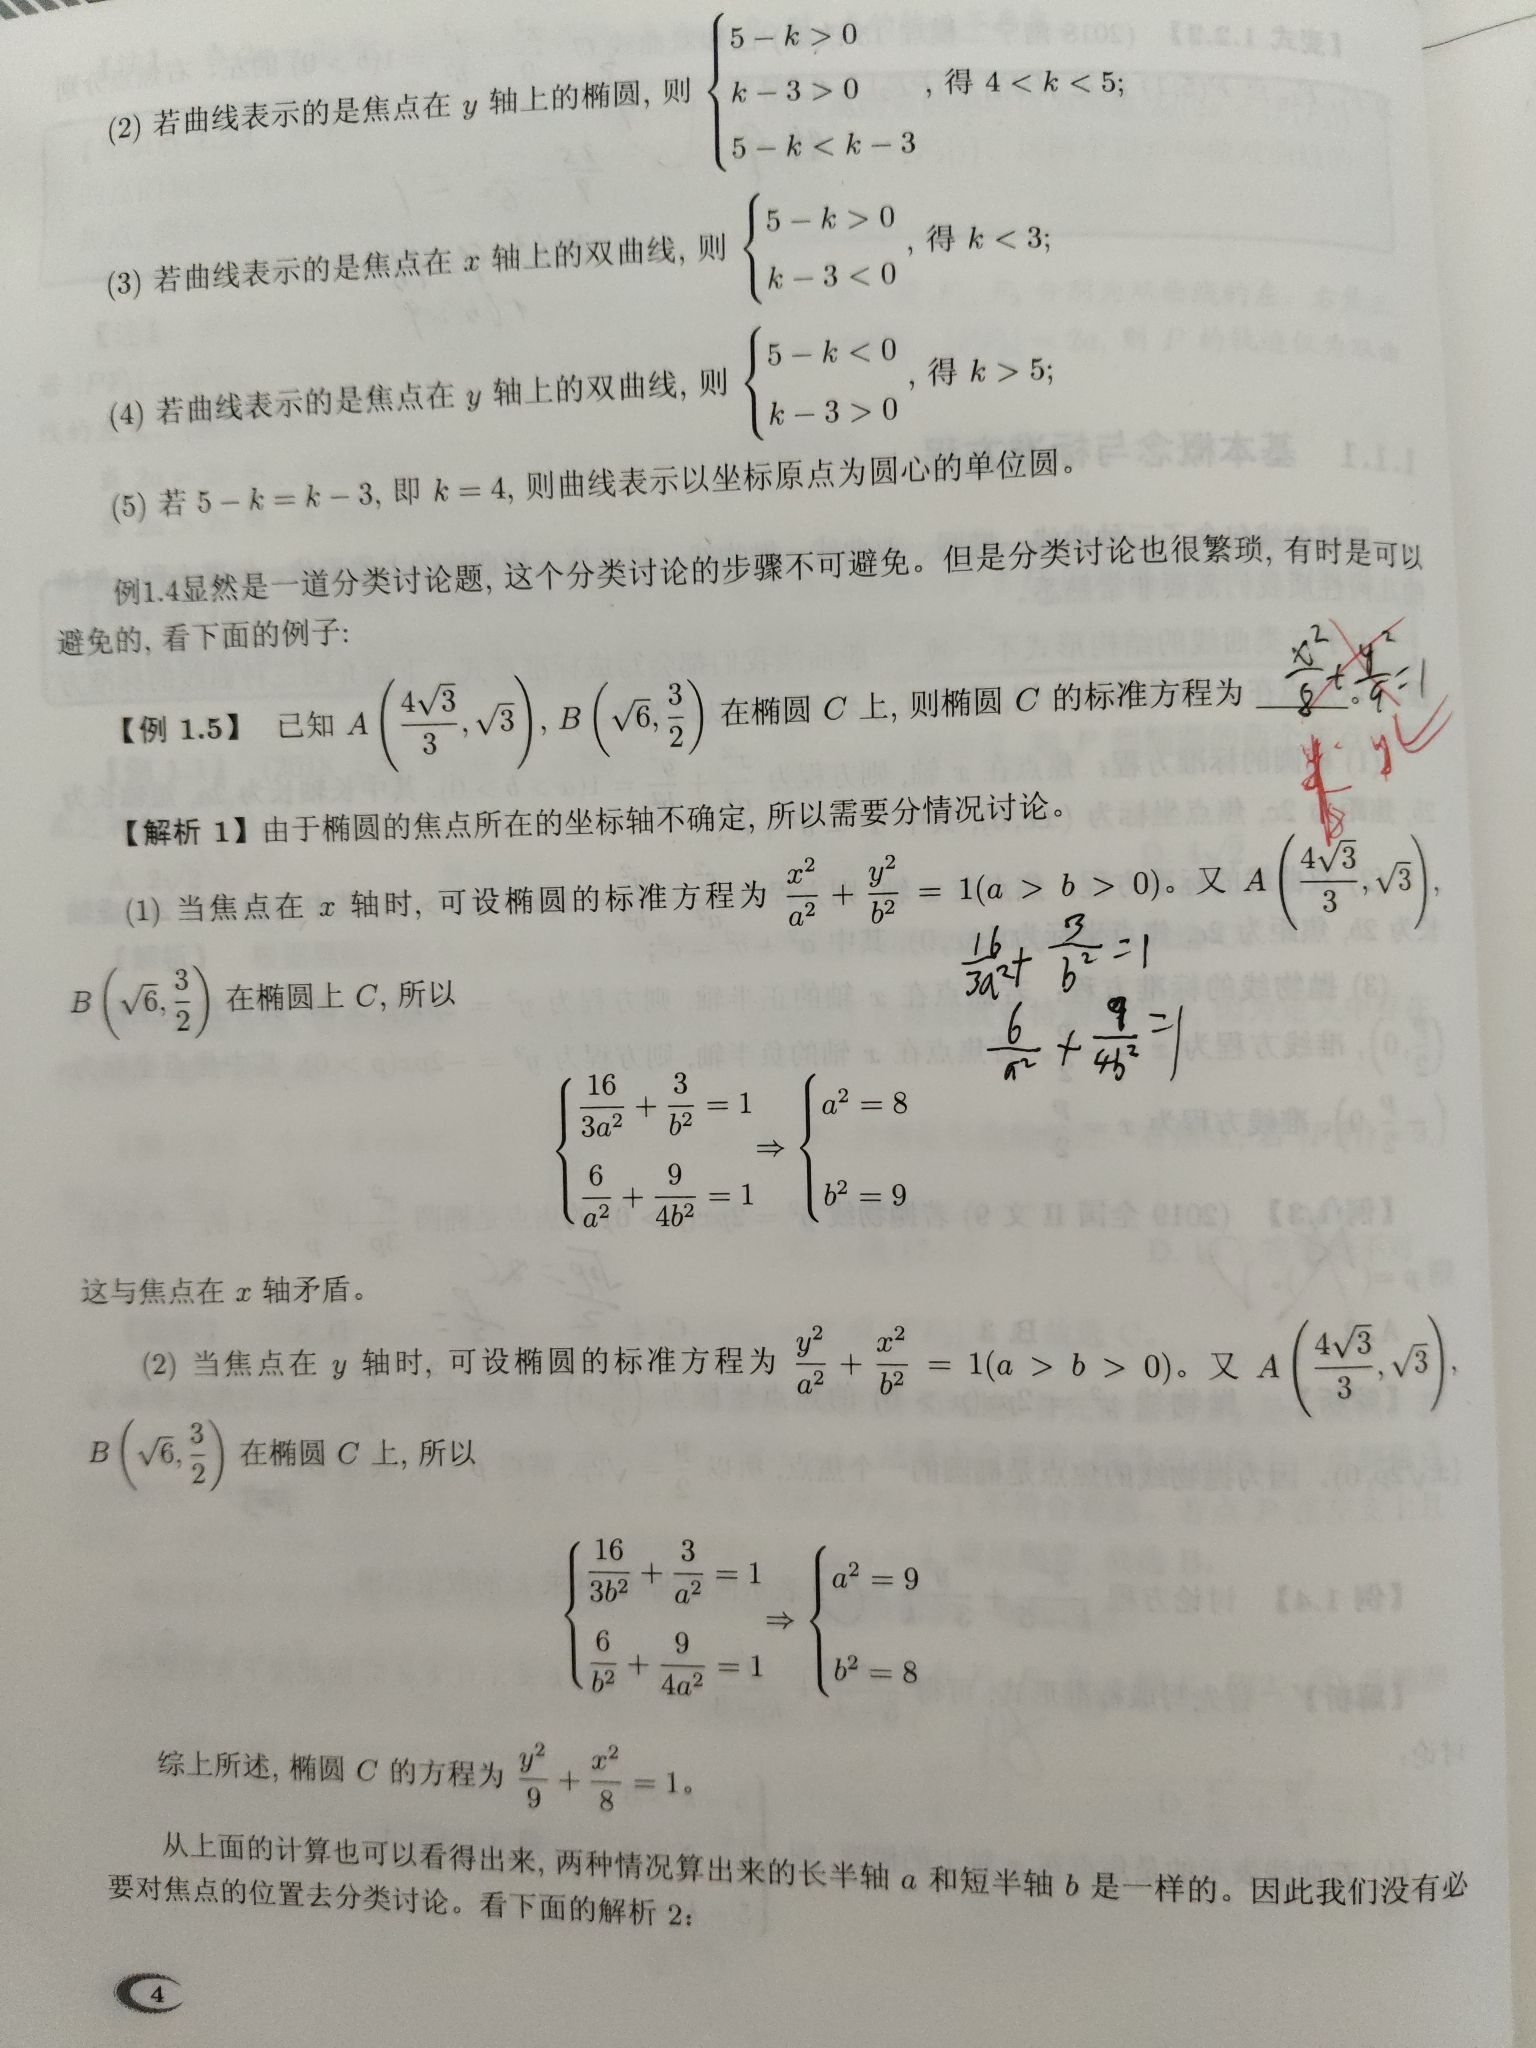 (2) 若曲线表示的是焦点在 y 轴上的椭圆, 则 { 5 − k > 0, k − 3 > 0, 5 − k < k − 3 , 得 4 < k < 5;
(3) 若曲线表示的是焦点在 x 轴上的双曲线, 则 { 5 − k > 0, k − 3 < 0 , 得 k < 3;
(4) 若曲线表示的是焦点在 y 轴上的双曲线, 则 { 5 − k < 0, k − 3 > 0 , 得 k > 5;
(5) 若 5 − k = k − 3, 即 k = 4, 则曲线表示以坐标原点为圆心的单位圆。
例1.4显然是一道分类讨论题, 这个分类讨论的步骤不可避免。但是分类讨论也很繁琐, 有时是可以
避免的, 看下面的例子:
x²/8 + y²/9 = 1
【例 1.5】 已知 A(4√3/3, √3), B(√6, 3/2) 在椭圆 C 上, 则椭圆 C 的标准方程为 ______。
【解析 1】由于椭圆的焦点所在的坐标轴不确定, 所以需要分情况讨论。
(1) 当焦点在 x 轴时, 可设椭圆的标准方程为 x²/a² + y²/b² = 1(a > b > 0)。又 A(4√3/3, √3),
B(√6, 3/2) 在椭圆上 C, 所以
16/3a² + 3/b² = 1
6/a² + 9/4b² = 1
{ 16/3a² + 3/b² = 1, 6/a² + 9/4b² = 1 ⇒ { a² = 8, b² = 9
这与焦点在 x 轴矛盾。
(2) 当焦点在 y 轴时, 可设椭圆的标准方程为 y²/a² + x²/b² = 1(a > b > 0)。又 A(4√3/3, √3),
B(√6, 3/2) 在椭圆 C 上, 所以
{ 16/3b² + 3/a² = 1, 6/b² + 9/4a² = 1 ⇒ { a² = 9, b² = 8
综上所述, 椭圆 C 的方程为 y²/9 + x²/8 = 1。
从上面的计算也可以看得出来, 两种情况算出来的长半轴 a 和短半轴 b 是一样的。因此我们没有必
要对焦点的位置去分类讨论。看下面的解析 2:
4